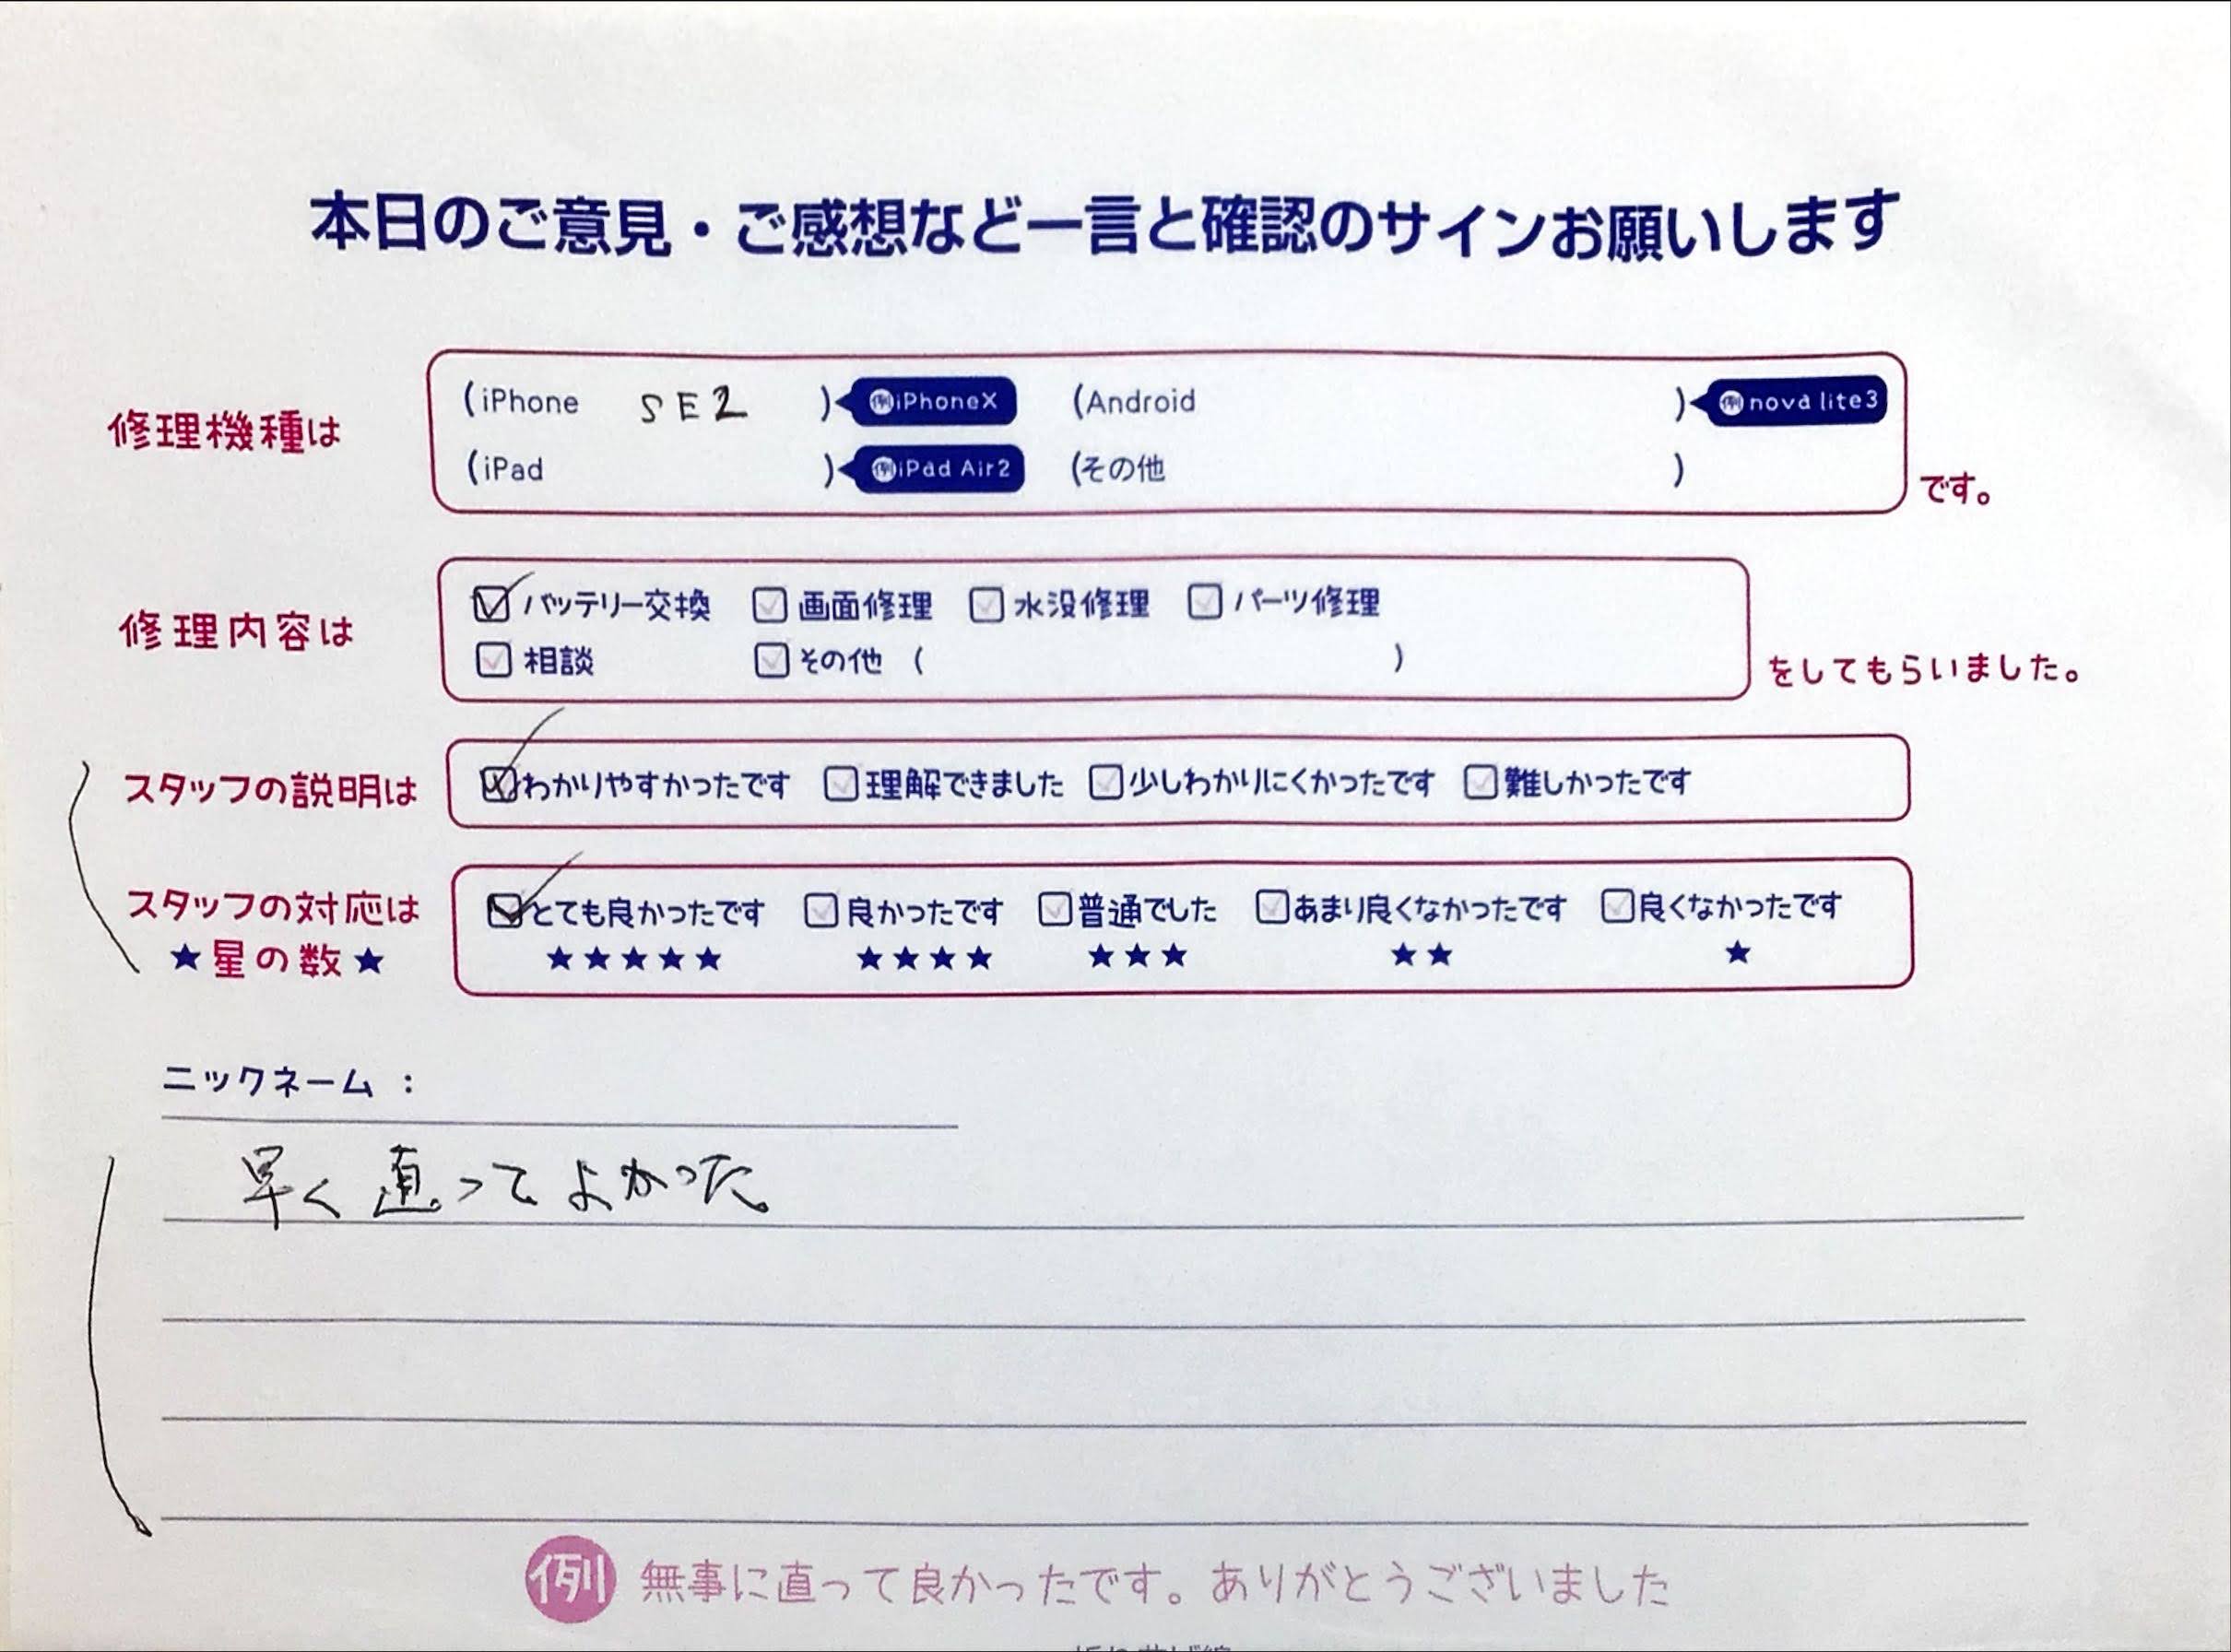 本日のご意見・ご感想など一言と確認のサインお願いします
修理機種は
(iPhone SE2 ) 例iPhoneX (Android ) 例nova lite3
(iPad ) 例iPad Air2 (その他 )
です。
修理内容は
バッテリー交換 画面修理 水没修理 パーツ修理
相談 その他 ( )
をしてもらいました。
スタッフの説明は
わかりやすかったです 理解できました 少しわかりにくかったです 難しかったです
スタッフの対応は
★星の数★
とても良かったです 良かったです 普通でした あまり良くなかったです 良くなかったです
★★★★★ ★★★★ ★★★ ★★ ★
ニックネーム :
早く直ってよかった。
例 無事に直って良かったです。ありがとうございました